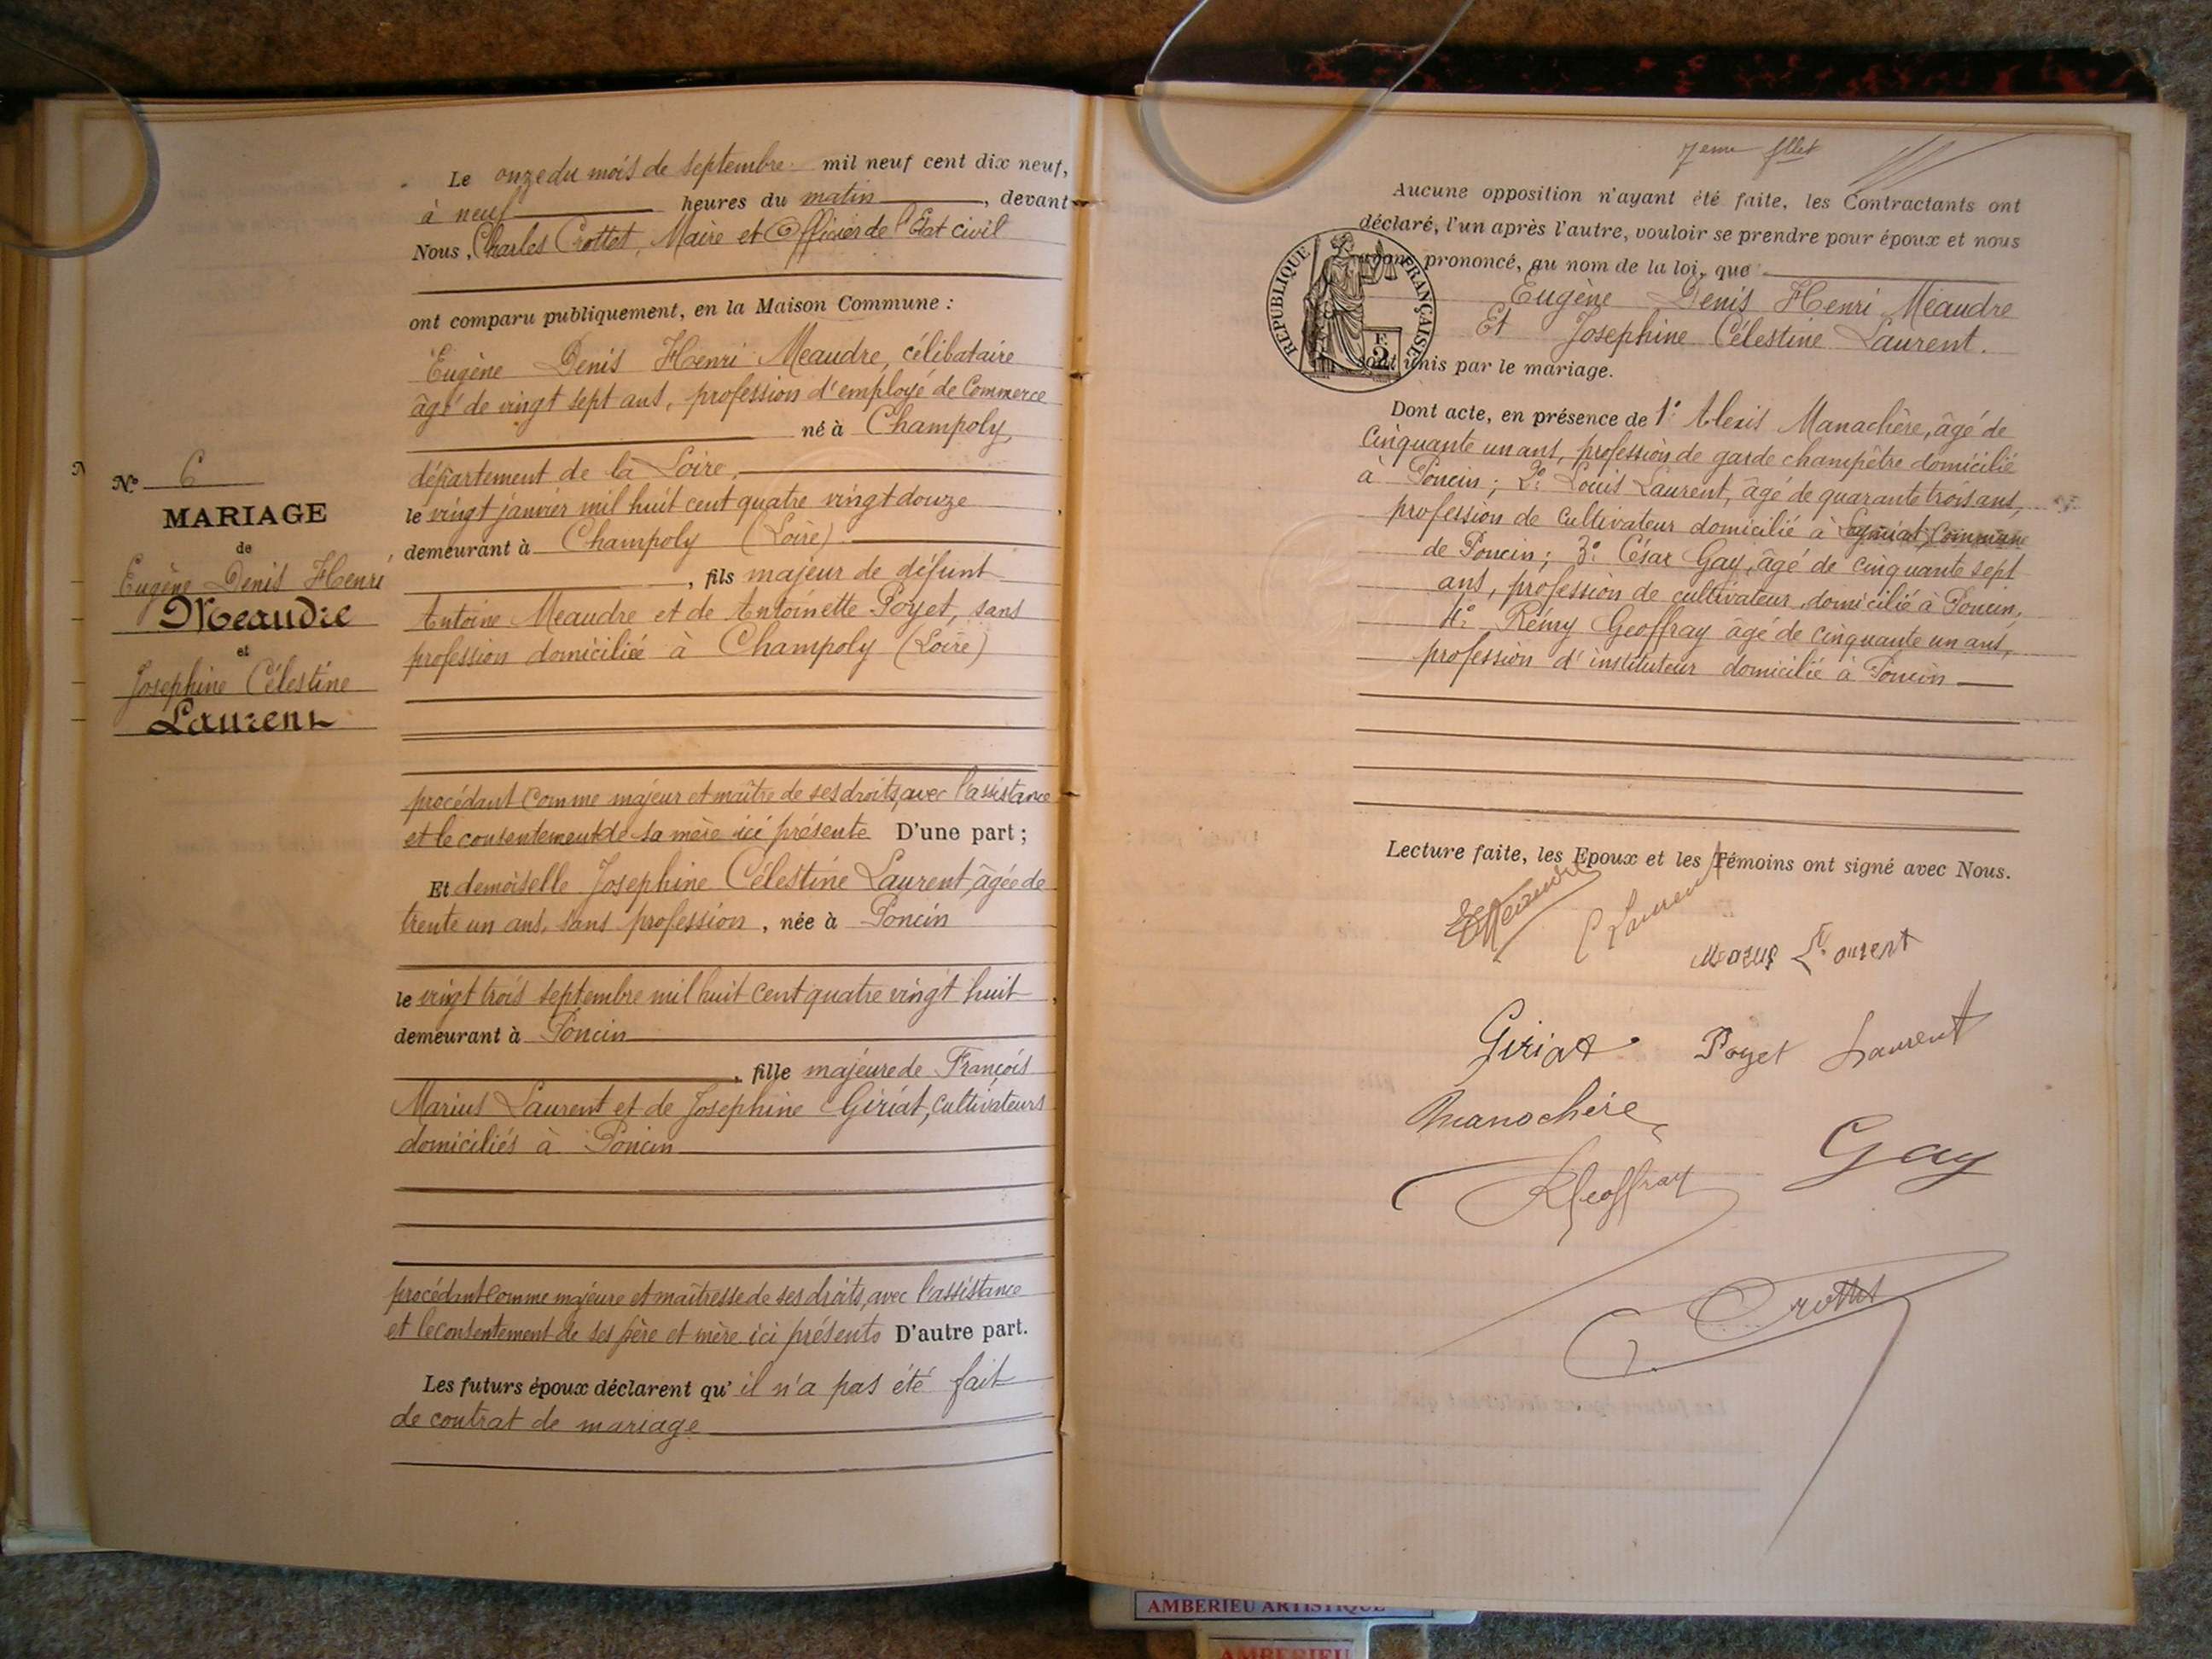 N° 6
MARIAGE
de
Eugène Denis Henri
Meaudre
et
Josephine Célestine
Laurent
Le onze du mois de septembre mil neuf cent dix neuf,
à neuf heures du matin, devant
Nous, Charles Crottet, Maire et Officier de l'Etat civil
ont comparu publiquement, en la Maison Commune :
Eugène Denis Henri Meaudre, célibataire
âgé de vingt sept ans, profession d'employé de Commerce
né à Champoly,
département de la Loire,
le vingt janvier mil huit cent quatre vingt douze
demeurant à Champoly (Loire)
, fils majeur de défunt
Antoine Meaudre et de Antoinette Poyet, sans
profession domiciliée à Champoly (Loire)
procédant comme majeur et maître de ses droits, avec l'assistance
et le consentement de sa mère ici présente D'une part ;
Et demoiselle Josephine Célestine Laurent, âgée de
trente un ans, sans profession, née à Poncin
le vingt trois septembre mil huit cent quatre vingt huit
demeurant à Poncin
, fille majeure de François
Marius Laurent et de Josephine Giriat, cultivateurs
domiciliés à Poncin
procédant comme majeure et maîtresse de ses droits, avec l'assistance
et le consentement de ses père et mère ici présents D'autre part.
Les futurs époux déclarent qu'il n'a pas été fait
de contrat de mariage
7eme fllet
Aucune opposition n'ayant été faite, les Contractants ont
déclaré, l'un après l'autre, vouloir se prendre pour époux et nous
avons prononcé, au nom de la loi, que
Eugène Denis Henri Meaudre
Et Josephine Célestine Laurent.
sont unis par le mariage.
REPUBLIQUE FRANÇAISE
2 F
Dont acte, en présence de 1° Alexis Manachère, âgé de
cinquante un ans, profession de garde champêtre domicilié
à Poncin ; 2° Louis Laurent, âgé de quarante trois ans,
profession de cultivateur domicilié à Leymiat, Commune
de Poncin ; 3° César Gay, âgé de cinquante sept
ans, profession de cultivateur, domicilié à Poncin,
4° Rémy Geoffray âgé de cinquante un ans,
profession d'instituteur domicilié à Poncin
Lecture faite, les Epoux et les Témoins ont signé avec Nous.
EMeaudre
C Laurent
Laurent
Giriat
Poyet
Laurent
Manochère
Gay
RGeoffray
Crottet
AMBERIEU ARTISTIQUE
AMBERIEU